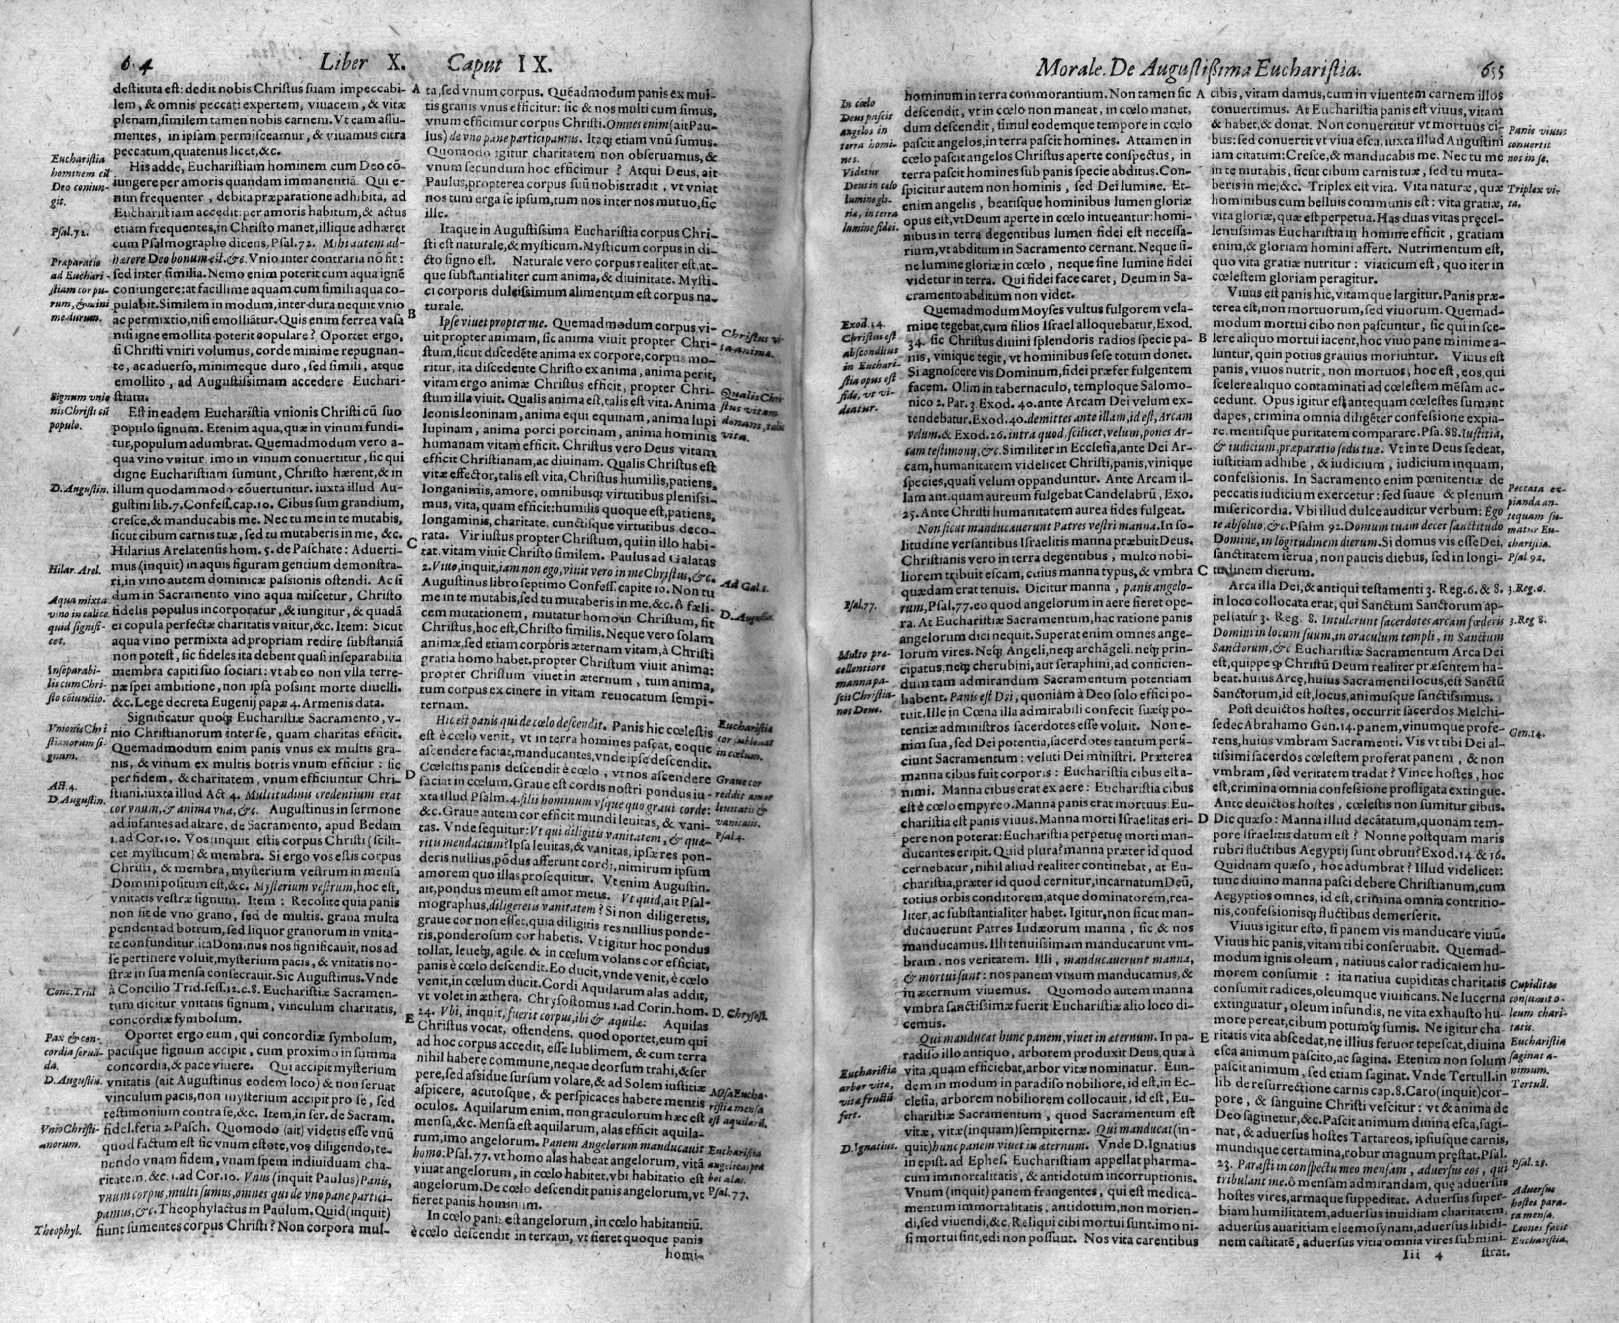 6 4 Liber X. Caput IX.
destituta est: dedit nobis Christus suam impeccabi-
lem, & omnis peccati expertem, viuacem, & vitæ
plenam, similem tamen nobis carnem. Vt eam assu-
mentes, in ipsam permisceamur, & viuamus citra
peccatum, quatenus licet, &c.
His adde, Eucharistiam hominem cum Deo cō-
iungere per amoris quandam immanentiā. Qui e-
nim frequenter, debita præparatione adhibita, ad
Eucharistiam accedit: per amoris habitum, & actus
etiam frequentes, in Christo manet, illique adhæret
cum Psalmographo dicens, Psal. 72. Mihi autem ad-
hærere Deo bonum est. &c. Vnio inter contraria nō fit:
sed inter similia. Nemo enim poterit cum aqua ignē
coniungere: at facillime aquam cum simili aqua co-
pulabit. Similem in modum, inter dura nequit vnio
ac permixtio, nisi emolliātur. Quis enim ferrea vasa
nisi igne emollita poterit copulare? Oportet ergo,
si Christi vniri volumus, corde minime repugnan-
te, ac aduerso, minimeque duro, sed simili, atque
emollito, ad Augustissimam accedere Euchari-
stiam.
Est in eadem Eucharistia vnionis Christi cū suo
populo signum. Etenim aqua, quæ in vinum fundi-
tur, populum adumbrat. Quemadmodum vero a-
qua vino vnitur, imo in vinum conuertitur, sic qui
digne Eucharistiam sumunt, Christo hærent, & in
illum quodammodo cōuertuntur. iuxta illud Au-
gustini lib. 7. Confess. cap. 10. Cibus sum grandium,
cresce, & manducabis me. Nec tu me in te mutabis,
sicut cibum carnis tuæ, sed tu mutaberis in me, &c.
Hilarius Arelatensis hom. 5. de Paschate: Aduerti-
mus (inquit) in aquis figuram gentium demonstra-
ri, in vino autem dominicæ passionis ostendi. Ac si
dum in Sacramento vino aqua miscetur, Christo
fidelis populus incorporatur, & iungitur, & quadā
ei copula perfectæ charitatis vnitur, &c. Item: Sicut
aqua vino permixta ad propriam redire substantiā
non potest, sic fideles ita debent quasi inseparabilia
membra capiti suo sociari: vt ab eo non vlla terre-
næ spei ambitione, non ipsa possint morte diuelli.
&c. Lege decreta Eugenij papæ 4. Armenis data.
Significatur quoq; Eucharistiæ Sacramento, v-
nio Christianorum inter se, quam charitas efficit.
Quemadmodum enim panis vnus ex multis gra-
nis, & vinum ex multis botris vnum efficiur: sic
per fidem, & charitatem, vnum efficiuntur Chri-
stiani. iuxta illud Act 4. Multitudinis credentium erat
cor vnum, & anima vna, &c. Augustinus in sermone
ad infantes ad altare, de Sacramento, apud Bedam
1. ad Cor. 10. Vos inquit estis corpus Christi (scili-
cet mysticum) & membra. Si ergo vos estis corpus
Christi, & membra, mysterium vestrum in mensa
Domini positum est, &c. Mysterium vestrum, hoc est,
vnitatis vestræ signum. Item: Recolite quia panis
non fit de vno grano, sed de multis. grana multa
pendent ad botrum, sed liquor granorum in vnita-
te confunditur. ita Dominus nos significauit, nos ad
se pertinere voluit, mysterium pacis, & vnitatis no-
stræ in sua mensa consecrauit. Sic Augustinus. Vnde
à Concilio Trid. sess. 12. c. 8. Eucharistiæ Sacramen-
tum dicitur vnitatis signum, vinculum charitatis,
concordiæ symbolum.
Oportet ergo eum, qui concordiæ symbolum,
pacisque signum accipit, cum proximo in summa
concordia, & pace viuere. Qui accipit mysterium
vnitatis (ait Augustinus eodem loco) & non seruat
vinculum pacis, non mysterium accipit pro se, sed
testimonium contra se, &c. Item, in ser. de Sacram.
fidel. feria 2. Pasch. Quomodo (ait) videtis esse vnū
quod factum est sic vnum estote, vos diligendo, te-
nendo vnam fidem, vnam spem indiuiduam cha-
ritate. n. &c. 1. ad Cor. 10. Vnus (inquit Paulus) Panis,
vnum corpus, multi sumus, omnes qui de vno pane partici-
pamus, &c. Theophylactus in Paulum, Quid (inquit)
fiunt sumentes corpus Christi? Non corpora mul-
Eucharistia
hominem cū
Deo coniun-
git.
Psal. 72.
Præparatio
ad Euchari-
stiam corpu-
rum, & mini
me durum.
Signum vnio
nis Christi cū
populo.
D. Augustin.
Hilar. Arel.
Aqua mixta
vino in calice
quid signifi-
cet.
Inseparabi-
lis cum Chri-
sto coiunctio.
Vnionis Chri
stianorum si-
gnum.
Act. 4.
D. Augustin.
Conc. Trid
Pax & con-
cordia seruā-
da.
D. Augustin.
Vnio Christi-
anorum.
Theophyl.
A
B
C
D
E
ta, sed vnum corpus. Quēadmodum panis ex mul-
tis granis vnus efficitur: sic & nos multi cum simus,
vnum efficimur corpus Christi. Omnes enim (ait Pau-
lus) de vno pane participamus. Itaq; etiam vnū sumus.
Quomodo igitur charitatem non obseruamus, &
vnum secundum hoc efficimur? Atqui Deus, ait
Paulus, propterea corpus suū nobis tradit, vt vniat
nos tum erga se ipsum, tum nos inter nos mutuo, sic
ille.
Itaque in Augustissima Eucharistia corpus Chri-
sti est naturale, & mysticum. Mysticum corpus in di-
cto signo est. Naturale vero corpus realiter est, at-
que substantialiter cum anima, & diuinitate. Mysti-
ci corporis dulcissimum alimentum est corpus na-
turale.
Ipse viuet propter me. Quemadmodum corpus vi-
uit propter animam, sic anima viuit propter Chri-
stum, sicut discedēte anima ex corpore, corpus mo-
ritur, ita discedente Christo ex anima, anima perit,
vitam ergo animæ Christus efficit, propter Chri-
stum illa viuit. Qualis anima est, talis est vita. Anima
leonis leoninam, anima equi equinam, anima lupi
lupinam, anima porci porcinam, anima hominis
humanam vitam efficit. Christus vero Deus vitam
efficit Christianam, ac diuinam. Qualis Christus est
vitæ effector, talis est vita, Christus humilis, patiens,
longanimis, amore, omnibusq; virtutibus plenissi-
mus, vita, quam efficit: humilis quoque est, patiens,
longaminis, charitate, cunctisque virtutibus deco-
rata. Vir iustus propter Christum, qui in illo habi-
tat, vitam viuit Christo similem. Paulus ad Galatas
2. Viuo, inquit, iam non ego, viuit vero in me Christus, &c.
Augustinus libro septimo Confess. capite 10. Non tu
me in te mutabis, sed tu mutaberis in me, &c. ô fæli-
cem mutationem, mutatur homo in Christum, fit
Christus, hoc est, Christo similis. Neque vero solam
animæ, sed etiam corporis æternam vitam, à Christi
gratia homo habet. propter Christum viuit anima:
propter Christum viuet in æternum, tum anima,
tum corpus ex cinere in vitam reuocatum sempi-
ternam.
Hic est panis qui de cœlo descendit. Panis hic cœlestis
est è cœlo venit, vt in terra homines pascat, eoque
ascendere faciat, manducantes, vnde ipse descendit.
Cœlestis panis descendit è cœlo, vt nos ascendere
faciat in cœlum. Graue est cordis nostri pondus iu-
xta illud Psalm. 4. filii hominum vsque quo graui corde:
&c. Graue autem cor efficit mundi leuitas, & vani-
tas. Vnde sequitur: Vt qui diligitis vanitatem, & quæ-
ritis mendacium? Ipsa leuitas, & vanitas, ipsæ res pon-
deris nullius, pōdus afferunt cordi, nimirum ipsum
amorem quo illas prosequitur. Vt enim Augustin.
ait, pondus meum est amor meus. Vt quid, ait Psal-
mographus, diligeretis vanitatem? Si non diligeretis,
graue cor non esset, quia diligitis res nullius ponde-
ris, ponderosum cor habetis. Vt igitur hoc pondus
tollat, leueq;, agile, & in cœlum volans cor efficiat,
panis è cœlo descendit. Eo ducit, vnde venit, è cœlo
venit, in cœlum ducit. Cordi Aquilarum alas addit,
vt volet in æthera. Chrysostomus 1. ad Corin. hom.
24. Vbi, inquit, fuerit corpus, ibi & aquilæ: Aquilas
Christus vocat, ostendens, quod oportet, eum qui
ad hoc corpus accedit, esse sublimem, & cum terra
nihil habere commune, neque deorsum trahi, & ser
pere, sed assidue sursum volare, & ad Solem iustitiæ
aspicere, acutosque, & perspicaces habere mentis
oculos. Aquilarum enim, non graculorum hæc est
mensa, &c. Mensa est aquilarum, alas efficit aquila-
rum, imo angelorum. Panem Angelorum manducauit
homo: Psal. 77. vt homo alas habeat angelorum, vitā
viuat angelorum, in cœlo habitet, vbi habitatio est
angelorum. De cœlo descendit panis angelorum, vt
fieret panis hominum.
In cœlo panis est angelorum, in cœlo habitantiū.
è cœlo descendit in terram, vt fieret quoque panis
homi-
Christus vi-
ta anima.
Qualis Chri
stus vitam
donans, talis
vita.
Ad Gal. 2.
D. Augustin.
Eucharistia
cor subleuat
in cœlum.
Graue cor
reddit amor
leuitatis &
vanitatis.
Psal. 4.
D. Chrysost.
Mensa Eucha-
ristia mensa
est aquilarū.
Eucharistia
angelica, præ
bet alas.
Psal. 77.
Morale. De Augustissima Eucharistia. 655
In cœlo
Deus pascit
angelos in
terra homi-
nes.
Videtur
Deus in cœlo
lumine glo-
ria, in terra
lumine fidei.
Exod. 34.
Christus est
absconditus
in Euchari-
stia opus est
fide, vt vi-
deatur.
Psal. 77.
Multo præ-
cellentiore
manna pa-
scit Christia-
nos Deus.
Eucharistia
arbor vitæ,
vitæ fructū
fert.
D. Ignatius.
hominum in terra commorantium. Non tamen sic
descendit, vt in cœlo non maneat, in cœlo manet,
dum descendit, simul eodemque tempore in cœlo
pascit angelos, in terra pascit homines. Attamen in
cœlo pascit angelos Christus aperte conspectus, in
terra pascit homines sub panis specie abditus. Con-
spicitur autem non hominis, sed Dei lumine. Et-
enim angelis, beatisque hominibus lumen gloriæ
opus est, vt Deum aperte in cœlo intueantur: homi-
nibus in terra degentibus lumen fidei est necessa-
rium, vt abditum in Sacramento cernant. Neque si-
ne lumine gloriæ in cœlo, neque sine lumine fidei
videtur in terra. Qui fidei face caret, Deum in Sa-
cramento abditum non videt.
Quemadmodum Moyses vultus fulgorem vela-
mine tegebat, cum filios Israel alloquebatur, Exod.
34. sic Christus diuini splendoris radios specie pa-
nis, vinique tegit, vt hominibus sese totum donet.
Si agnoscere vis Dominum, fidei præfer fulgentem
facem. Olim in tabernaculo, temploque Salomo-
nico 2. Par. 3. Exod. 40. ante Arcam Dei velum ex-
tendebatur. Exod. 40. demittes ante illam, id est, Arcam
velum. & Exod. 26. intra quod, scilicet, velum, pones Ar-
cam testimonij, &c. Similiter in Ecclesia, ante Dei Ar-
cam, humanitatem videlicet Christi, panis, vinique
species, quasi velum oppanduntur. Ante Arcam il-
lam ant. quam aureum fulgebat Candelabrū, Exo.
25. Ante Christi humanitatem aurea fides fulgeat.
Non sicut manducauerunt Patres vestri manna. In so-
litudine versantibus Israelitis manna præbuit Deus.
Christianis vero in terra degentibus, multo nobi-
liorem tribuit escam, cuius manna typus, & vmbra
quædam erat tenuis. Dicitur manna, panis angelo-
rum, Psal. 77. eo quod angelorum in aere fieret ope-
ra. At Eucharistiæ Sacramentum, hac ratione panis
angelorum dici nequit. Superat enim omnes ange-
lorum vires. Neq; Angeli, neq; archāgeli, neq; prin-
cipatus, neq; cherubini, aut seraphini, ad conficien-
dum tam admirandum Sacramentum potentiam
habent. Panis est Dei, quoniā à Deo solo effici po-
tuit. Ille in Cœna illa admirabili confecit suæq; po-
tentiæ administros sacerdotes esse voluit. Non e-
nim sua, sed Dei potentia, sacerdotes tantum perfi-
ciunt Sacramentum: veluti Dei ministri. Præterea
manna cibus fuit corporis: Eucharistia cibus est a-
nimi. Manna cibus erat ex aere: Eucharistia cibus
est è cœlo empyreo. Manna panis erat mortuus: Eu-
charistia est panis viuus. Manna morti Israelitas eri-
pere non poterat: Eucharistia perpetuę morti man-
ducantes eripit. Quid plura? manna præter id quod
cernebatur, nihil aliud realiter continebat, at Eu-
charistia, præter id quod cernitur, incarnatum Deū,
totius orbis conditorem, atque dominatorem, rea-
liter, ac substantialiter habet. Igitur, non sicut man-
ducauerunt Patres Iudæorum manna, sic & nos
manducamus. Illi tenuissimam manducarunt vm-
bram, nos veritatem. Illi, manducauerunt manna,
& mortui sunt: nos panem viuum manducamus, &
in æternum viuemus. Quomodo autem manna
vmbra sanctissimæ fuerit Eucharistiæ alio loco di-
cemus.
Qui manducat hunc panem, viuet in æternum. In pa-
radiso illo antiquo, arborem produxit Deus, quæ à
vita, quam efficiebat, arbor vitæ nominatur. Eun-
dem in modum in paradiso nobiliore, id est, in Ec-
clesia, arborem nobiliorem collocauit, id est, Eu-
charistiæ Sacramentum, quod Sacramentum est
vitæ, vitæ (inquam) sempiternæ. Qui manducat (in-
quit) hunc panem viuet in æternum. Vnde D. Ignatius
in epist. ad Ephes. Eucharistiam appellat pharma-
cum immortalitatis, & antidotum incorruptionis.
Vnum (inquit) panem frangentes, qui est medica-
mentum immortalitatis, antidotum, non morien-
di, sed viuendi, &c. Reliqui cibi mortui sunt. imo ni-
si mortui sint, edi non possunt. Nos vita carentibus
A
B
C
D
E
cibis, vitam damus, cum in viuentem carnem illos
conuertimus. At Eucharistia panis est viuus, vitam
& habet, & donat. Non conuertitur vt mortuus ci-
bus: sed conuertit vt viua esca, iuxta illud Augustini
iam citatum: Cresce, & manducabis me. Nec tu me
in te mutabis, sicut cibum carnis tuæ, sed tu muta-
beris in me, &c. Triplex est vita. Vita naturæ, quæ
hominibus cum belluis communis est: vita gratiæ,
vita gloriæ, quæ est perpetua. Has duas vitas pręcel-
lentissimas Eucharistia in homine efficit, gratiam
enim, & gloriam homini affert. Nutrimentum est,
quo vita gratiæ nutritur: viaticum est, quo iter in
cœlestem gloriam peragitur.
Viuus est panis hic, vitamque largitur. Panis præ-
terea est, non mortuorum, sed viuorum. Quemad-
modum mortui cibo non pascuntur, sic qui in sce-
lere aliquo mortui iacent, hoc viuo pane minime a-
luntur, quin potius grauius moriuntur. Viuus est
panis, viuos nutrit, non mortuos, hoc est, eos, qui
scelere aliquo contaminati ad cœlestem mēsam ac-
cedunt. Opus igitur est, antequam cœlestes sumant
dapes, crimina omnia diligēter confessione expia-
re, mentisque puritatem comparare. Psa. 88. Iustitia,
& iudicium, præparatio sedis tuæ. Vt in te Deus sedeat,
iustitiam adhibe, & iudicium, iudicium inquam,
confessionis. In Sacramento enim pœnitentiæ de
peccatis iudicium exercetur: sed suaue & plenum
misericordia. Vbi illud dulce auditur verbum: Ego
te absoluo, &c. Psalm 92. Domum tuam decet sanctitudo
Domine, in lōgitudinem dierum. Si domus vis esse Dei,
sanctitatem serua, non paucis diebus, sed in longi-
tudinem dierum.
Arca illa Dei, & antiqui testamenti 3. Reg. 6. & 8.
in loco collocata erat, qui Sanctum Sanctorum ap-
pellatur 3. Reg. 8. Intulerunt sacerdotes arcam fœderis
Domini in locum suum, in oraculum templi, in Sanctum
Sanctorum, &c Eucharistiæ Sacramentum Arca Dei
est, quippe q Christū Deum realiter præsentem ha-
beat. huius Arcę, huius Sacramenti locus, est Sanctū
Sanctorum, id est, locus, animusque sanctissimus.
Post deuictos hostes, occurrit sacerdos Melchi-
sedec Abrahamo Gen. 14. panem, vinumque profe-
rens, huius vmbram Sacramenti. Vis vt tibi Dei al-
tissimi sacerdos cœlestem proferat panem, & non
vmbram, sed veritatem tradat? Vince hostes, hoc
est, crimina omnia confessione profligata extingue.
Ante deuictos hostes, cœlestis non sumitur cibus.
Dic quæso: Manna illud decātatum, quonam tem-
pore Israelitis datum est? Nonne postquam maris
rubri fluctibus Aegyptij sunt obruti? Exod. 14 & 16.
Quidnam quæso, hoc adumbrat? Illud videlicet:
tunc diuino manna pasci debere Christianum, cum
Aegyptios omnes, id est, crimina omnia contritio-
nis, confessionisq; fluctibus demerserit.
Viuus igitur esto, si panem vis manducare viuū.
Viuus hic panis, vitam tibi conseruabit. Quemad-
modum ignis oleum, natiuus calor radicalem hu-
morem consumit: ita natiua cupiditas charitatis
consumit radices, oleumque viuificans. Ne lucerna
extinguatur, oleum infundis, ne vita exhausto hu-
more pereat, cibum potumq; sumis. Ne igitur cha-
ritatis vita abscedat, ne illius feruor tepescat, diuina
esca animum pascito, ac sagina. Etenim non solum
pascit animum, sed etiam saginat. Vnde Tertull. in
lib de resurrectione carnis cap. 8. Caro (inquit) cor-
pore, & sanguine Christi vescitur: vt & anima de
Deo saginetur, &c. Pascit animum diuina esca, sagi-
nat, & aduersus hostes Tartareos, ipsiusque carnis,
mundique certamina, robur magnum pręstat. Psal.
23. Parasti in conspectu meo mensam, aduersus eos, qui
tribulant me. ô mensam admirandam, quæ aduersus
hostes vires, armaque suppeditat. Aduersus super-
biam humilitatem, aduersus inuidiam charitatem,
aduersus auaritiam eleemosynam, aduersus libidi-
nem castitatē, aduersus vitia omnia vires submini-
Iii 4 strat.
Panis viuus
conuertit
nos in se.
Triplex vi-
ta.
Peccata ex-
pianda an-
tequam su-
matur Eu-
charistia.
Psal. 92.
3. Reg. 6.
3. Reg 8.
Gen. 14.
Cupiditas
consumit o-
leum chari-
tatis.
Eucharistia
saginat a-
nimum.
Tertull.
Psal. 28.
Aduersus
hostes para-
ta mensa.
Leones facit
Eucharistia.